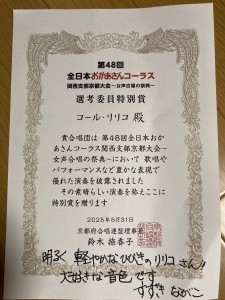 第48回
全日本おかあさんコーラス
関西支部京都大会～女声合唱の祭典～
選考委員特別賞
コール・リリコ 殿
貴合唱団は 第48回全日本おか
あさんコーラス関西支部京都大会～
女声合唱の祭典～において 歌唱や
パフォーマンスなど豊かな表現で
優れた演奏を披露されました
その素晴らしい演奏を称えここに
特別賞を贈ります
2025年5月31日
京都府合唱連盟理事長
鈴木 捺香子
明るく 軽やかなひびきの リリコ さん!!
大好きな音色です
すずき なかこ